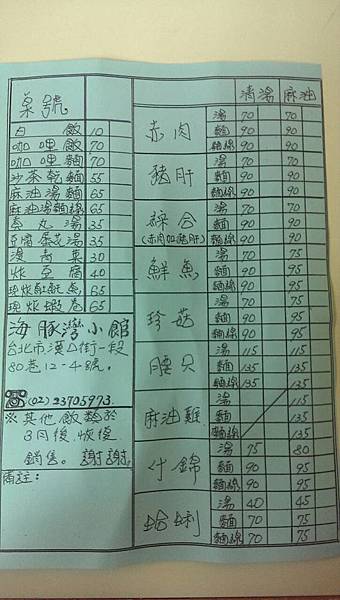 桌號
白飯 10
咖哩飯 70
咖哩麵 70
沙茶乾麵 55
麻油湯麵 65
麻油湯麵線 65
魚丸湯 35
豆腐蛋花湯 35
燙青菜 30
炸豆腐 40
現炸魠魠魚 65
現炸蝦卷 65
海豚灣小館
台北市漢口街一段
80巷12-4號。
☎(02)23705973
※其他飯類於
3月後恢復
銷售。謝謝。
備註：
清湯 麻油
赤肉 湯 70 70
麵 90 90
麵線 90 90
豬肝 湯 70 70
麵 90 90
麵線 90 90
綜合 湯 70 70
(赤肉加豬肝) 麵 90 90
麵線 90 90
鮮魚 湯 70 75
麵 90 95
麵線 90 95
珍菇 湯 70 75
麵 90 95
麵線 90 95
腰只 湯 115 115
麵 135 135
麵線 135 135
麻油雞 湯 115
麵 135
麵線 135
什錦 湯 75 80
麵 90 95
麵線 90 95
蛤蜊 湯 40 45
麵 70 75
麵線 70 75